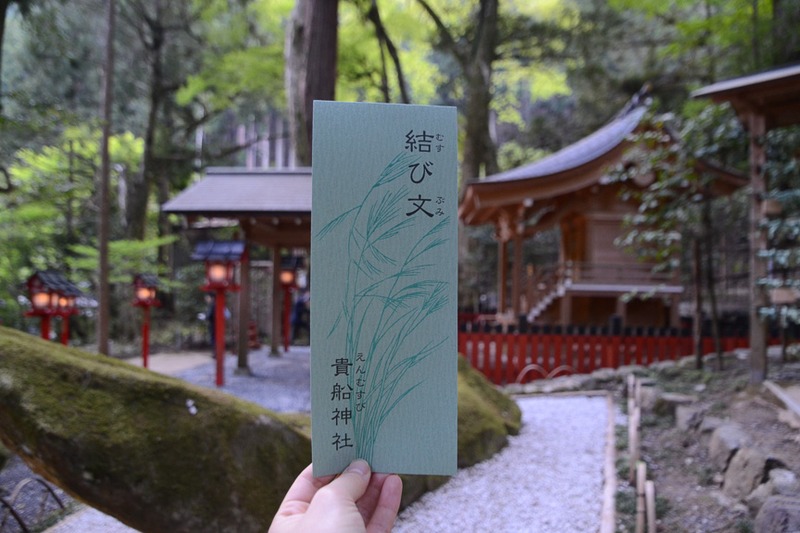 結び文
むす
ぶみ
貴船神社
えんむすび